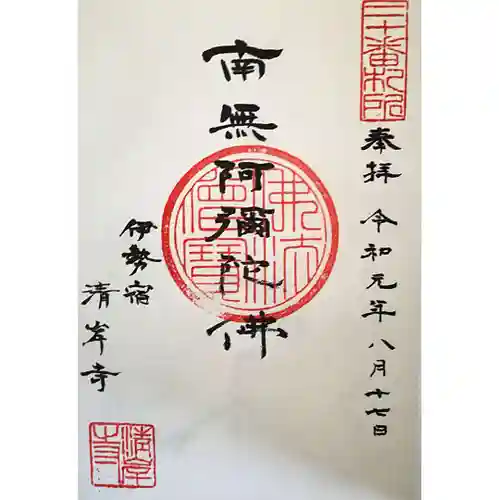 三十番札所
奉拝 令和元年八月十七日
南無阿彌陀佛
佛法僧寳
伊勢宿
清岸寺
清岸寺